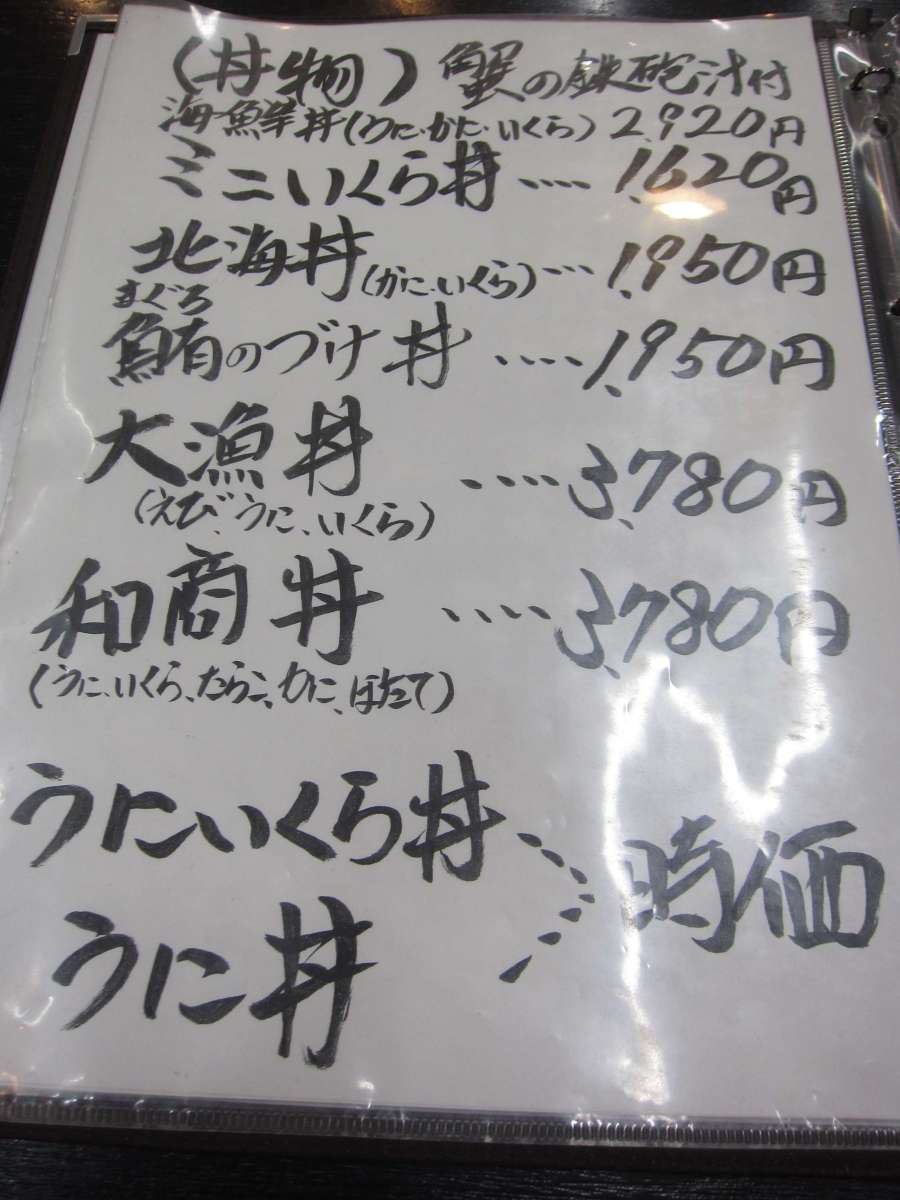 (丼物) 蟹の鉄砲汁付
海鮮丼(うに・かに・いくら) 2,920円
ミニいくら丼 ‥‥ 1,620円
北海丼(かに・いくら)‥‥ 1,950円
まぐろ
鮪のづけ丼 ‥‥ 1,950円
大漁丼 ‥‥ 3,780円
(えび、うに、いくら)
和商丼 ‥‥ 3,780円
(うに、いくら、たらこ、かに、ほたて)
うにいくら丼
時価
うに丼